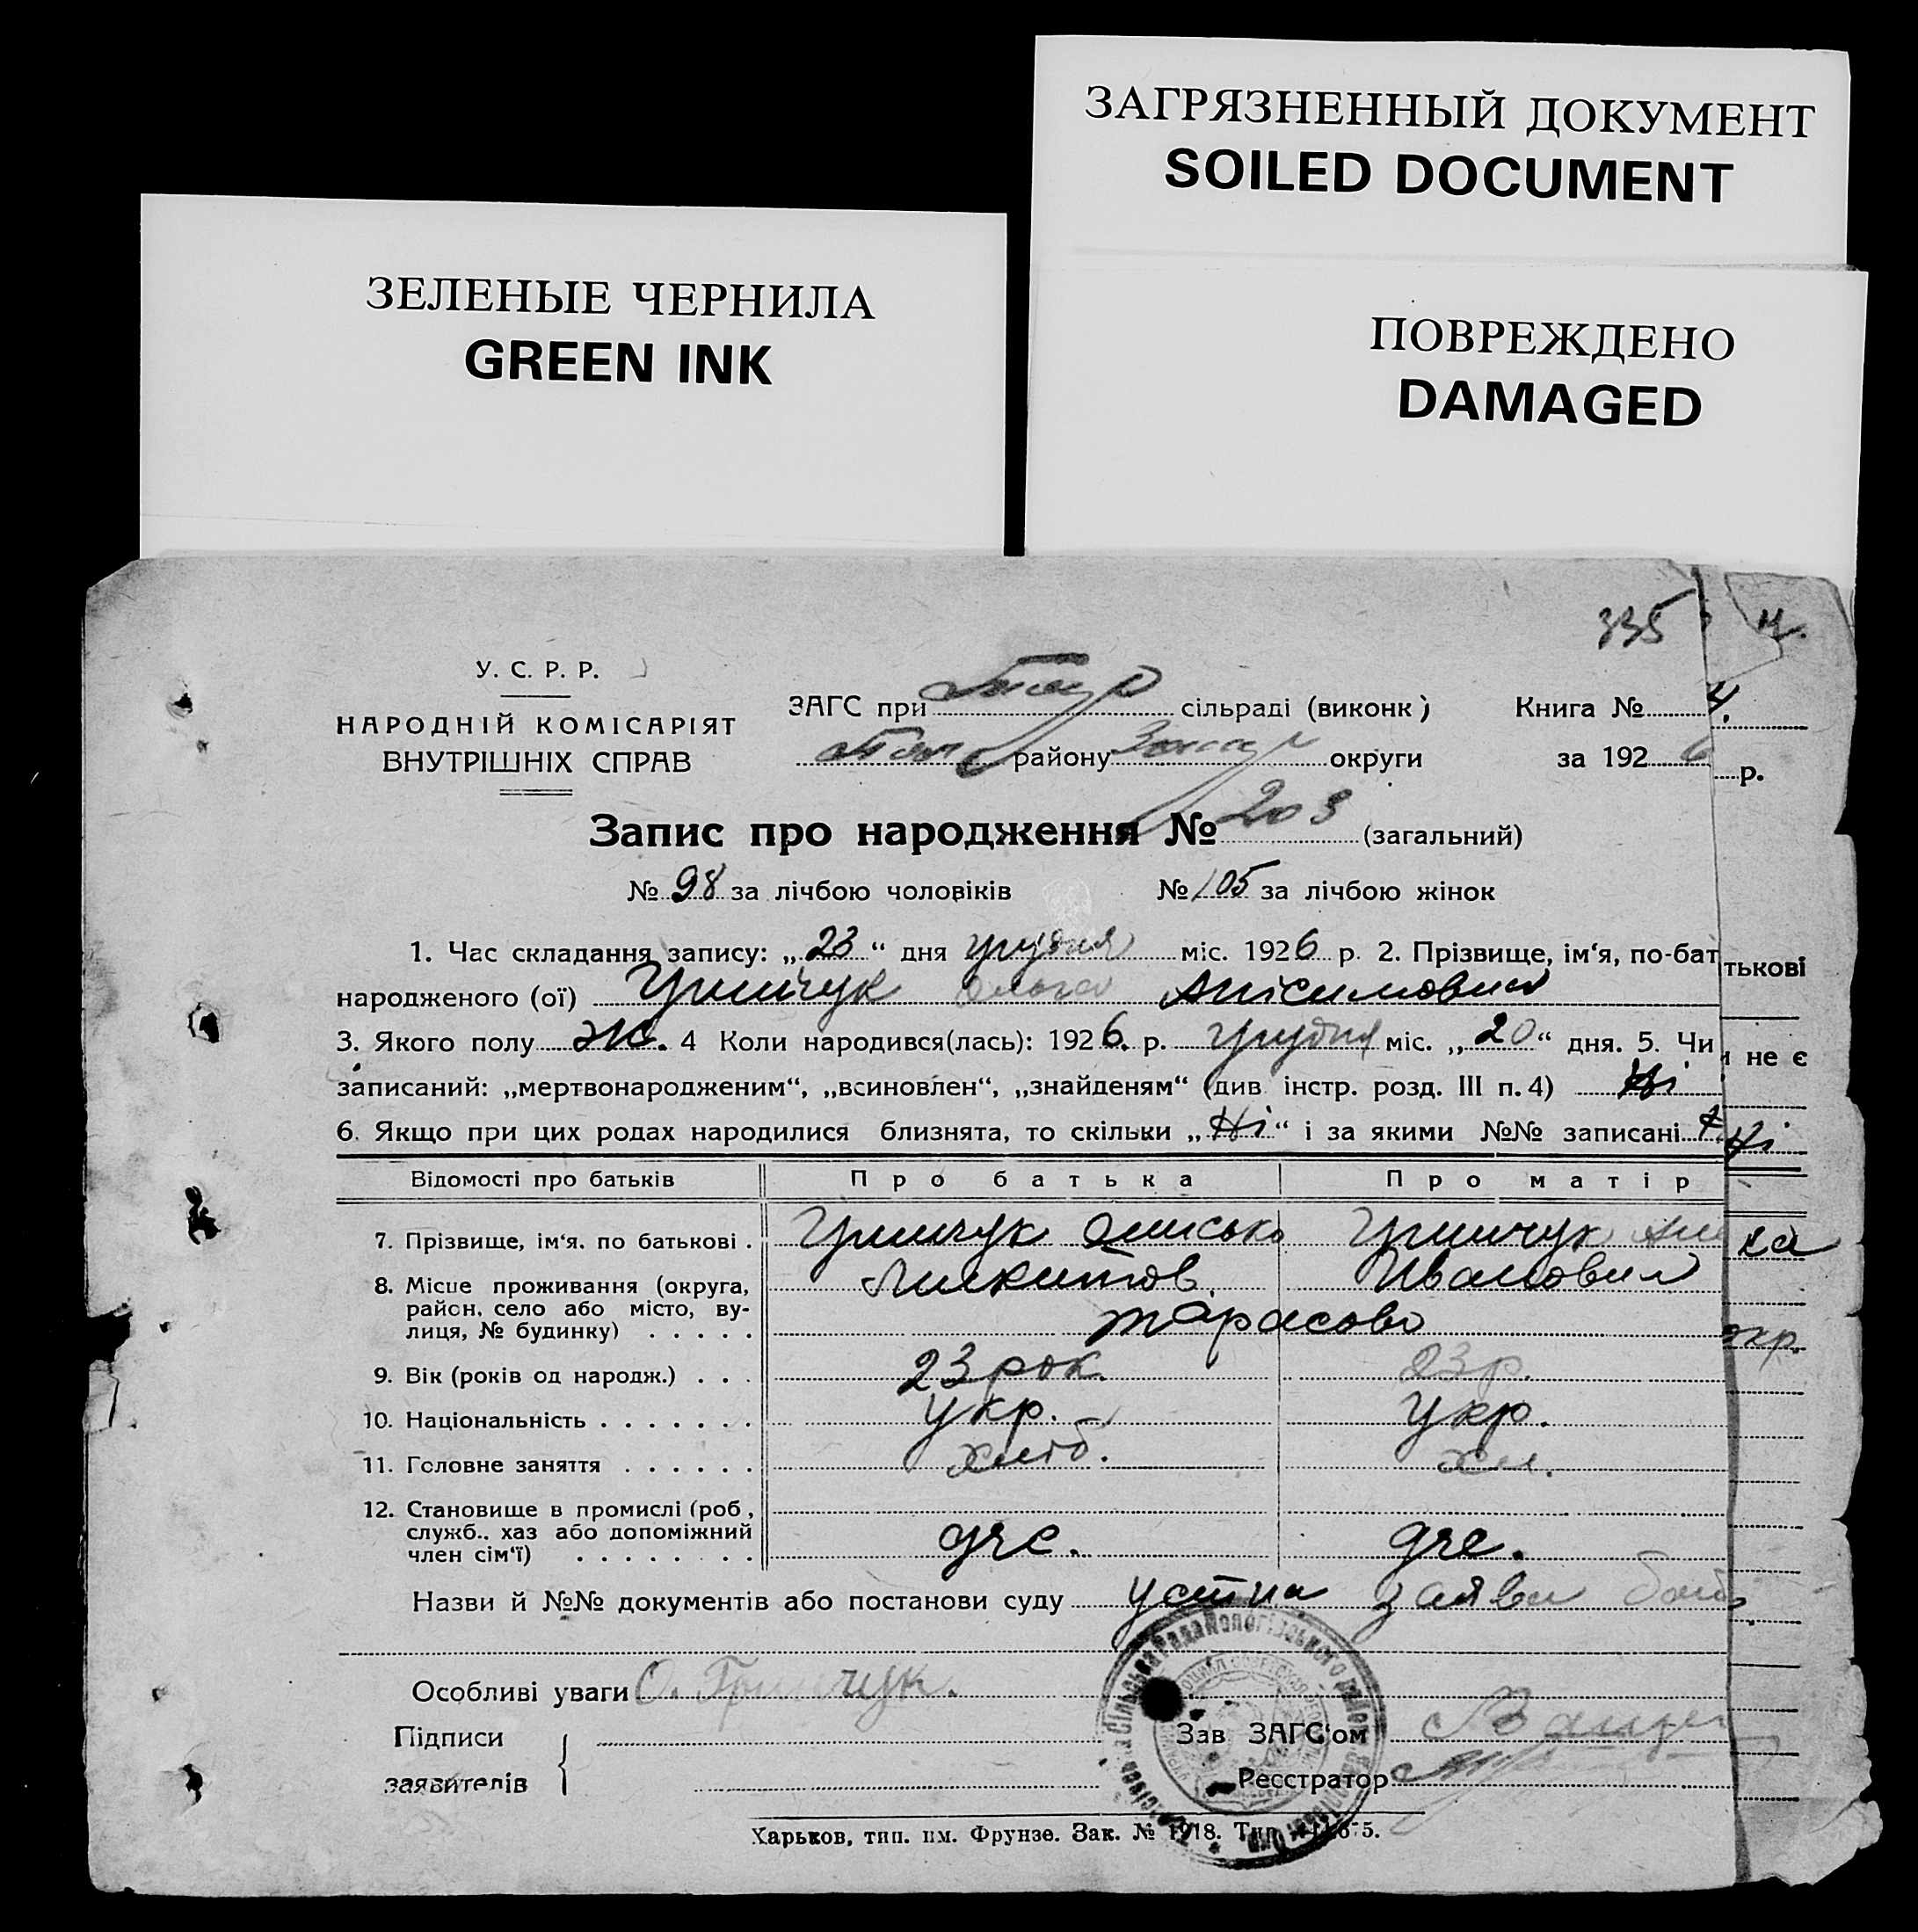 ЗАГРЯЗНЕННЫЙ ДОКУМЕНТ
SOILED DOCUMENT
ЗЕЛЕНЫЕ ЧЕРНИЛА
GREEN INK
ПОВРЕЖДЕНО
DAMAGED
335 4.
У. С. Р. Р.
НАРОДНІЙ КОМІСАРІЯТ
ВНУТРІШНІХ СПРАВ
ЗАГС при сільраді (виконк)
району округи
Книга № 4.
за 1926 р.
Запис про народження № 203 (загальний)
№ 98 за лічбою чоловіків № 105 за лічбою жінок
1. Час складання запису: „23“ дня грудня міс. 1926 р. 2. Прізвище, ім‘я, по-бат тькові
народженого (ої) Гринчук Ольга Анісимовна
3. Якого полу Ж. 4 Коли народився(лась): 1926. р. грудня міс. „20“ дня. 5. Чи не є
записаний: „мертвонародженим“, „всиновлен“, „знайденям“ (див інстр. розд. III п. 4) Ні
6. Якщо при цих родах народилися близнята, то скільки „Ні“ і за якими №№ записані Ні
Відомості про батьків Про батька Про матір
7. Прізвище, ім‘я. по батькові . Гринчук Онисько Гринчук
Микитов Ивановна
8. Місце проживання (округа,
район, село або місто, ву-
лиця, № будинку) . . . . . Тарасово
9. Вік (років од народж.) . . . 23 рок. 23 р.
10. Національність . . . . . . . Укр. Укр.
11. Головне заняття . . . . . . хліб. хл.
12. Становище в промислі (роб,
служб., хаз або допоміжний
член сім‘ї) . . . . . . . .
Назви й №№ документів або постанови суду устна заява
Особливі уваги О. Гринчук.
Підписи
заявителів
Зав ЗАГС‘ом
Реєстратор
Харьков, тип. им. Фрунзе. Зак. № 1918.